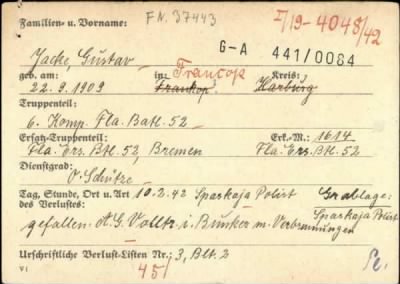 Familien- u. Vorname: FN. 37443 I/19-4048/42
G-A 441/0084
Jacke Gustav
geb. am: in: Francop Kreis:
22. 9. 1909 Frankop Harburg
Truppenteil:
6. Komp. Fla. Batl. 52
Ersatz-Truppenteil: Erk.-M.: 1614
Fla. Ers. Btl. 52, Bremen Fla. Ers. Btl. 52
Dienstgrad:
O. Schütze
Tag, Stunde, Ort u. Art 10. 2. 42 Sparkaja Polist Grablage:
des Verlustes: Sparkaja Polist
gefallen. A. G. Volltr. i. Bunker m. Verbrennungen
Urschriftliche Verlust-Listen Nr.: 3, Blt. 2
VI 45/